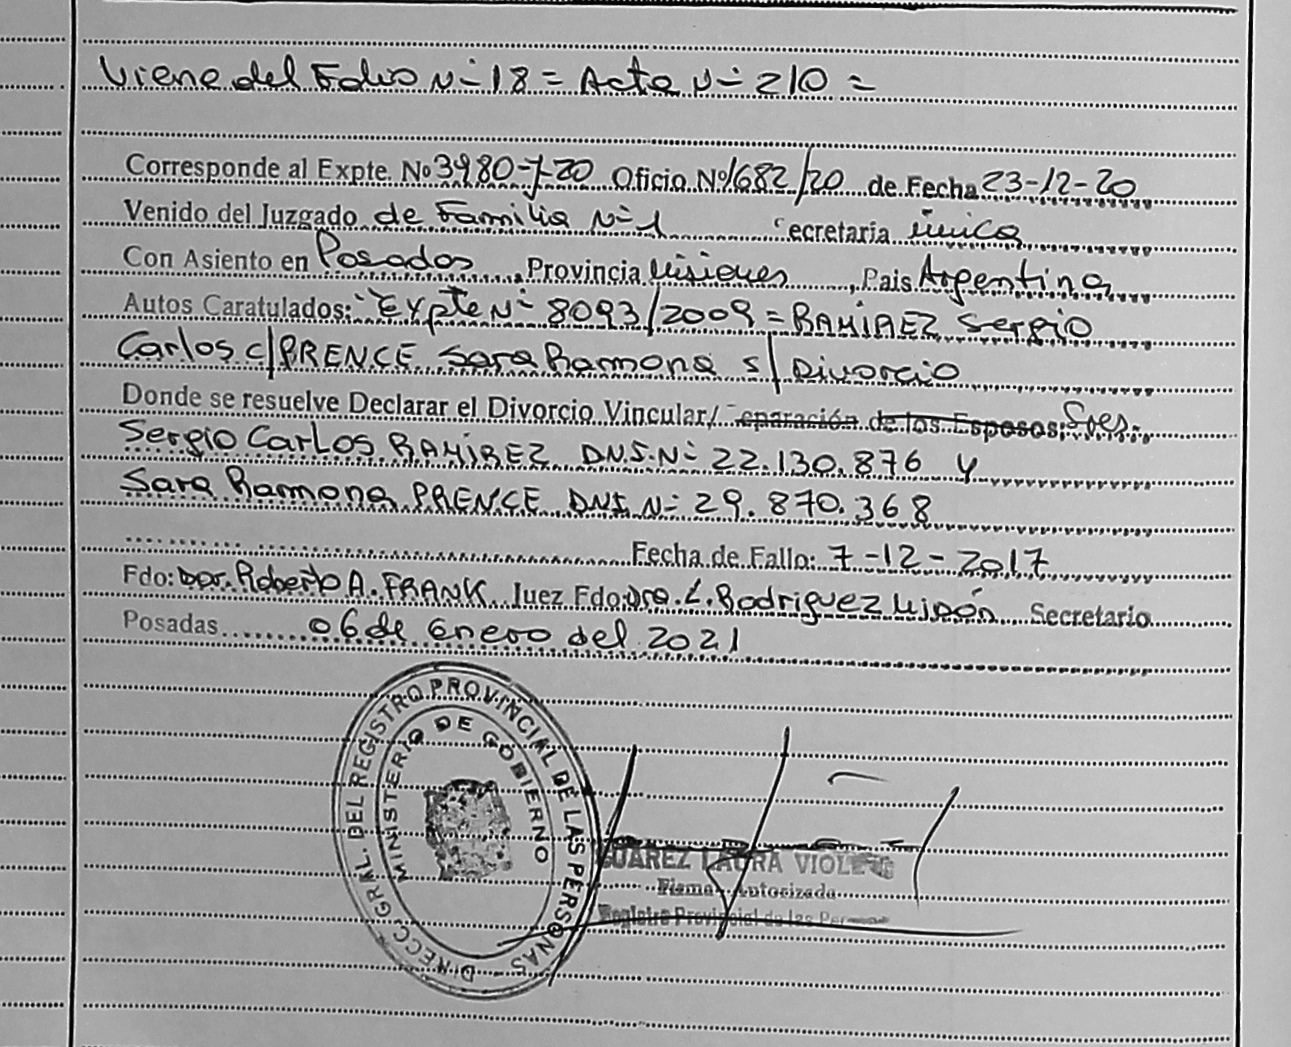 Viene del Folio Nº 18 = Acta Nº 210 =
Corresponde al Expte. Nº 3980-7-20 Oficio Nº 1682/20 de Fecha 23-12-20
Venido del Juzgado de Familia Nº 1 Secretaria única
Con Asiento en Posadas, Provincia Misiones, Pais Argentina
Autos Caratulados: "Expte Nº 8093/2009 = RAMIREZ Sergio
Carlos c/ PRENCE Sara Ramona s/ Divorcio
Donde se resuelve Declarar el Divorcio Vincular/ Separación de los Esposos: Sres.
Sergio Carlos RAMIREZ DNI Nº 22.130.876 y
Sara Ramona PRENCE DNI Nº 29.870.368
Fecha de Fallo: 7-12-2017
Fdo: Dor. Roberto A. FRANK Juez Fdo: Dra. L. Rodriguez Secretario
Posadas 06 de Enero del 2021
DIRECC. GRAL. DEL REGISTRO PROVINCIAL DE LAS PERSONAS
MINISTERIO DE GOBIERNO
SUAREZ LAURA VIOLETA
Firma Autorizada
Registro Provincial de las Personas